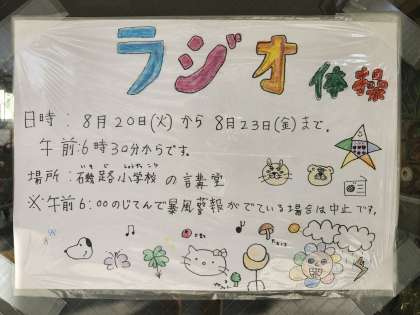 ラジオ体操
日時：8月20日(火)から8月23日(金)まで。
午前:6時30分からです。
いそじしょうがっこう
場所：磯路小学校の言葉室
※午前6:00のじてんで暴風警報がでている場合は中止です。